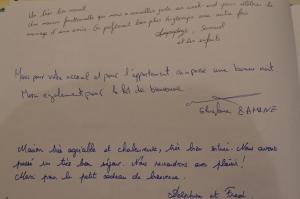 Un très bon accueil
Une maison fonctionnelle qui nous a accueillis juste un week-end pour célébrer le
mariage d'une amie. En profiterons bien plus longtemps une autre fois
Samuel
et les enfants
Merci pour votre accueil et pour l'appartement
Merci également pour le Pot de bienvenue
Ghislaine
Maison très agréable et chaleureuse, très bien située. Nous avons
passé un très bon séjour. Nous reviendrons avec plaisir!
Merci pour le petit cadeau de bienvenue.
Delphine et Fred